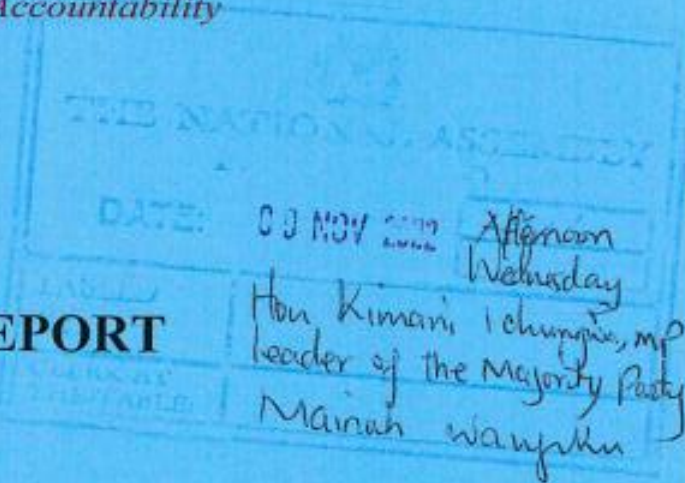 Accountability
THE NATIONAL ASSEMBLY
DATE: 09 NOV 2022 Afternoon
Wednesday
EPORT
Hon Kimani Ichungwa, MP
Leader of the Majority Party
CLERK AT
THE TABLE:
Mainah